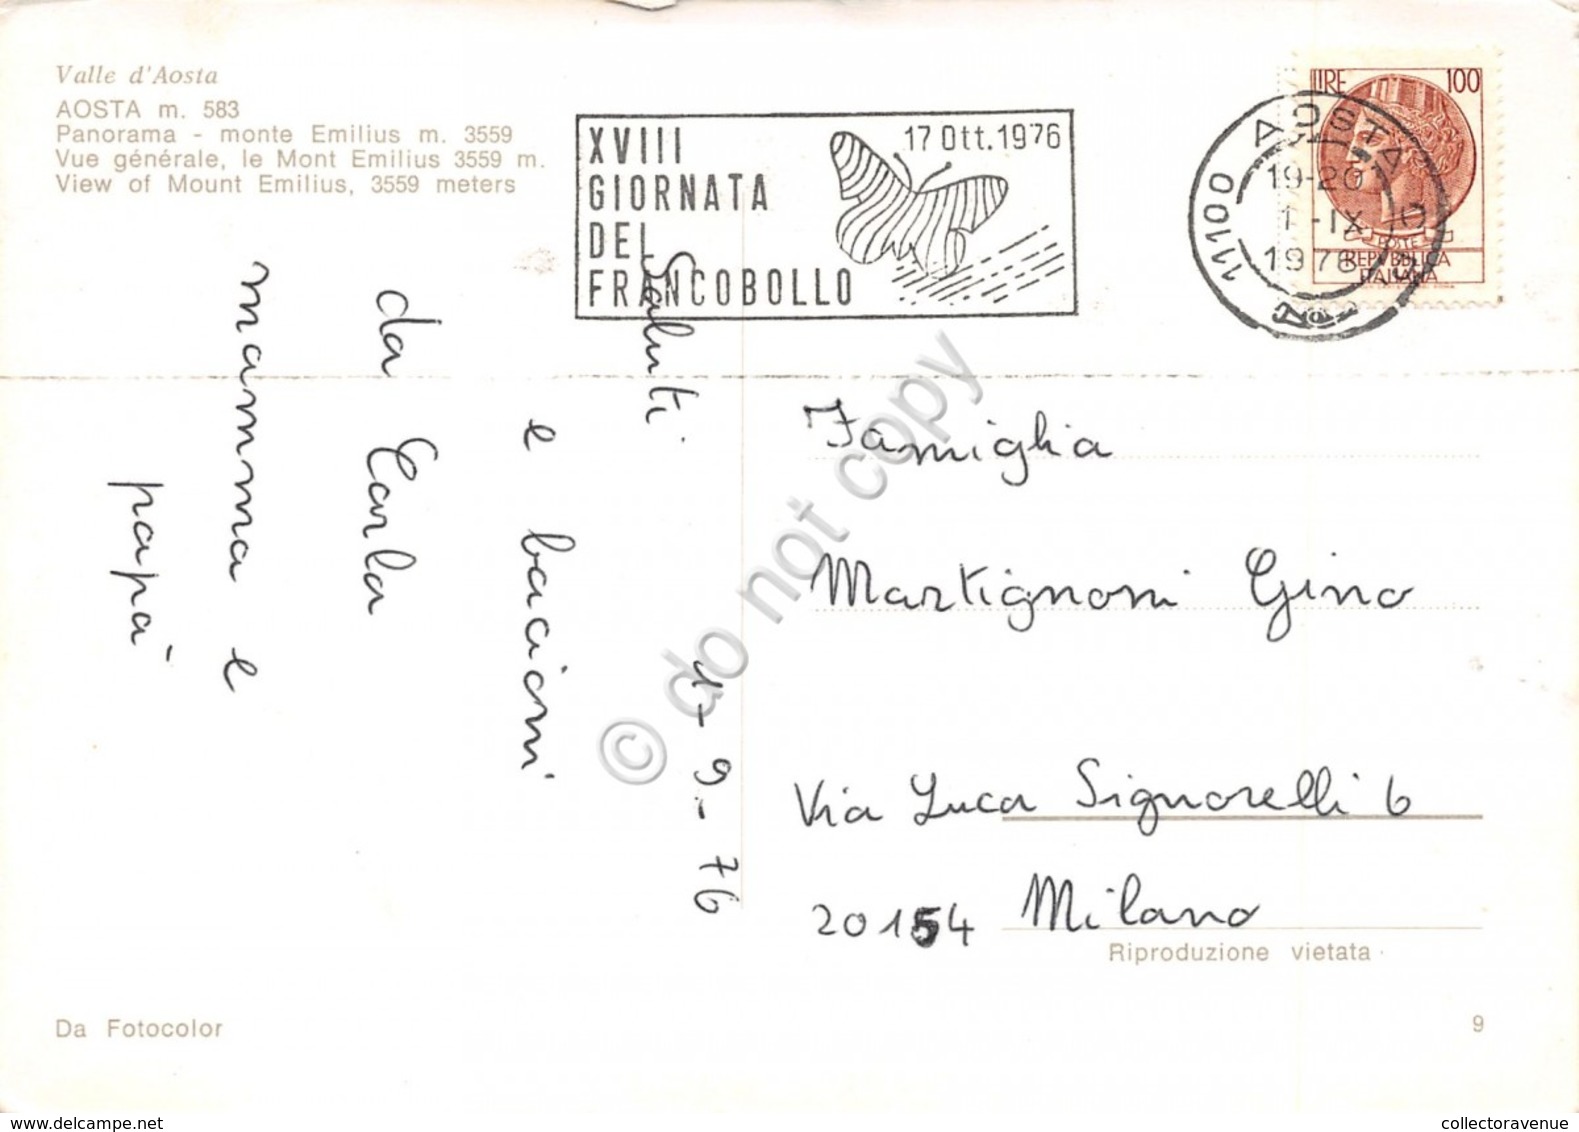 Valle d'Aosta
AOSTA m. 583
Panorama - monte Emilius m. 3559
Vue générale, le Mont Emilius 3559 m.
View of Mount Emilius, 3559 meters
XVIII
GIORNATA
DEL
FRANCOBOLLO
17 Ott. 1976
AOSTA
19-20
1-IX
1976
11100
LIRE 100
POSTE
REPUBBLICA
ITALIANA
1-9-76
Saluti
e bacioni
da Carla
mamma e
papà
Famiglia
Martignoni Gino
Via Luca Signorelli 6
20154 Milano
Riproduzione vietata
Da Fotocolor
9
© do not copy
collectoravenue
www.delcampe.net